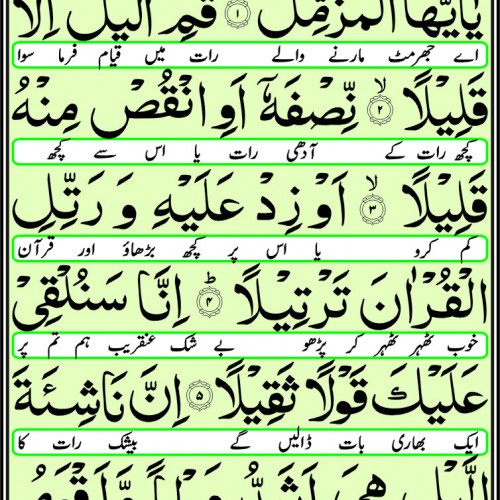 يٰۤاَيُّهَا الْمُزَّمِّلُ ۙ﴿۱﴾ قُمِ الَّيْلَ اِلَّا
اے جھرمٹ مارنے والے رات میں قیام فرما سوا
قَلِيْلًا ۙ﴿۲﴾ نِّصْفَهٗۤ اَوِ انْقُصْ مِنْهُ
کچھ رات کے آدھی رات یا اس سے کچھ
قَلِيْلًا ۙ﴿۳﴾ اَوْ زِدْ عَلَيْهِ وَ رَتِّلِ
کم کرو یا اس پر کچھ بڑھاؤ اور قرآن
الْقُرْاٰنَ تَرْتِيْلًا ؕ﴿۴﴾ اِنَّا سَنُلْقِيْ
خوب ٹھہر ٹھہر کر پڑھو بے شک عنقریب ہم تم پر
عَلَيْكَ قَوْلًا ثَقِيْلًا ﴿۵﴾ اِنَّ نَاشِئَةَ
ایک بھاری بات ڈالیں گے بیشک رات کا
الَّيْلِ هِيَ اَشَدُّ وَطْاً وَّ اَقْوَمُ